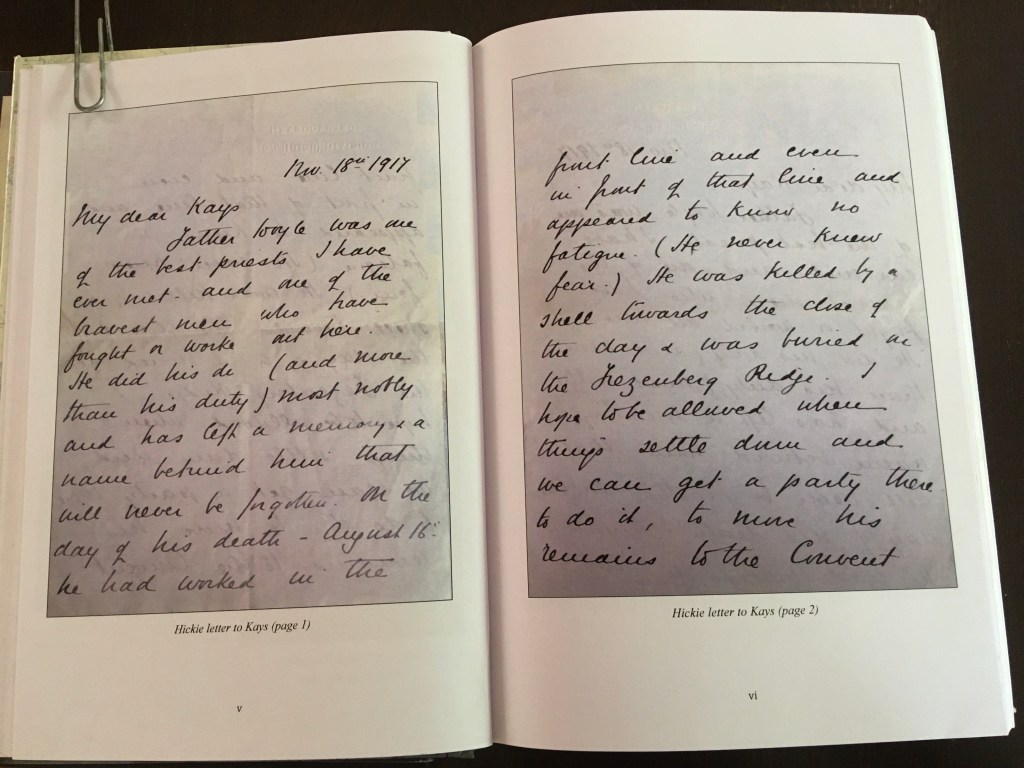 Nov. 18th 1917
My dear Kays
Father Doyle was one
of the best priests I have
ever met. and one of the
bravest men who have
fought or worke out here.
He did his du (and more
than his duty) most nobly
and has left a memory & a
name behind him that
will never be forgotten. On the
day of his death - August 16th
he had worked in the
Hickie letter to Kays (page 1)
v
front line and even
in front of that line and
appeared to know no
fatigue. (He never knew
fear.) He was killed by a
shell towards the close of
the day & was buried on
the Frezenberg Ridge. I
hope to be allowed when
things settle down and
we can get a party there
to do it, to move his
remains to the Convent
Hickie letter to Kays (page 2)
vi